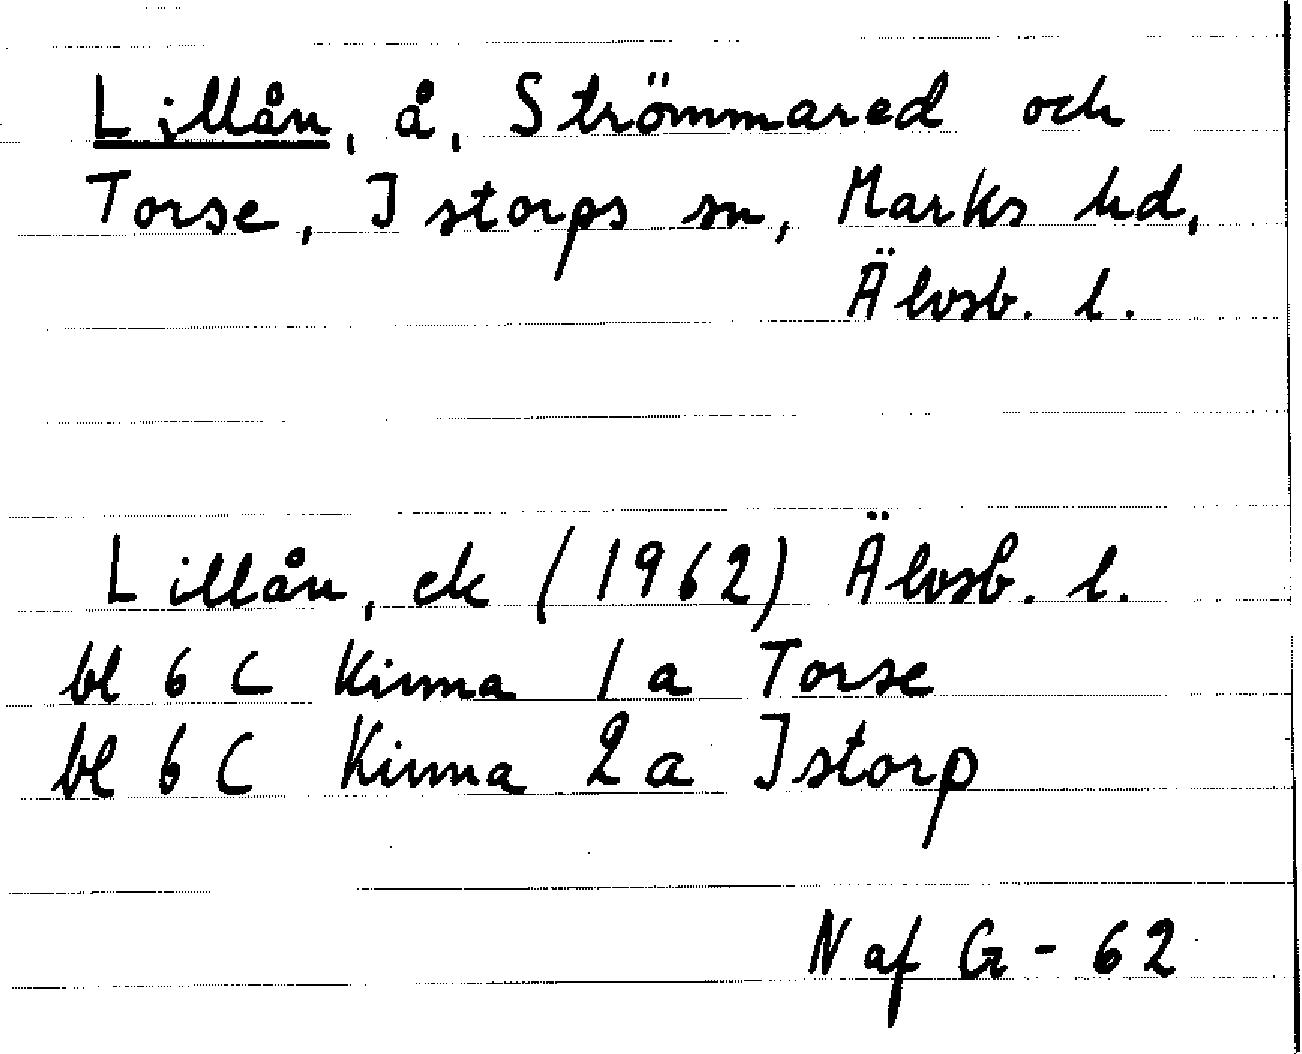 Lillån, å, Strömmared och
Torse, Istorps sn, Marks hd,
Älvsb. l.
Lillån, ek (1962) Älvsb. l.
bl 6 C Kinna 1 a Torse
bl 6 C Kinna 2 a Istorp
N af G - 62